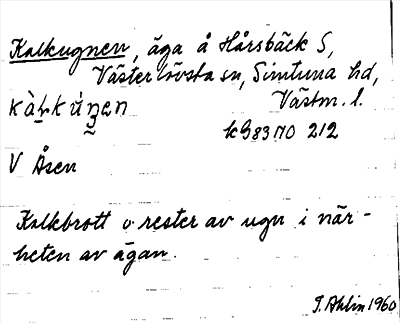 Kalkugnen, äga å Hårsbäck S,
Västerlövsta sn, Simtuna hd,
Västm. l.
kG83770 212
V Åsen
Kalkbrott o rester av ugn i när-
heten av ägan.
I. Ahlin 1960